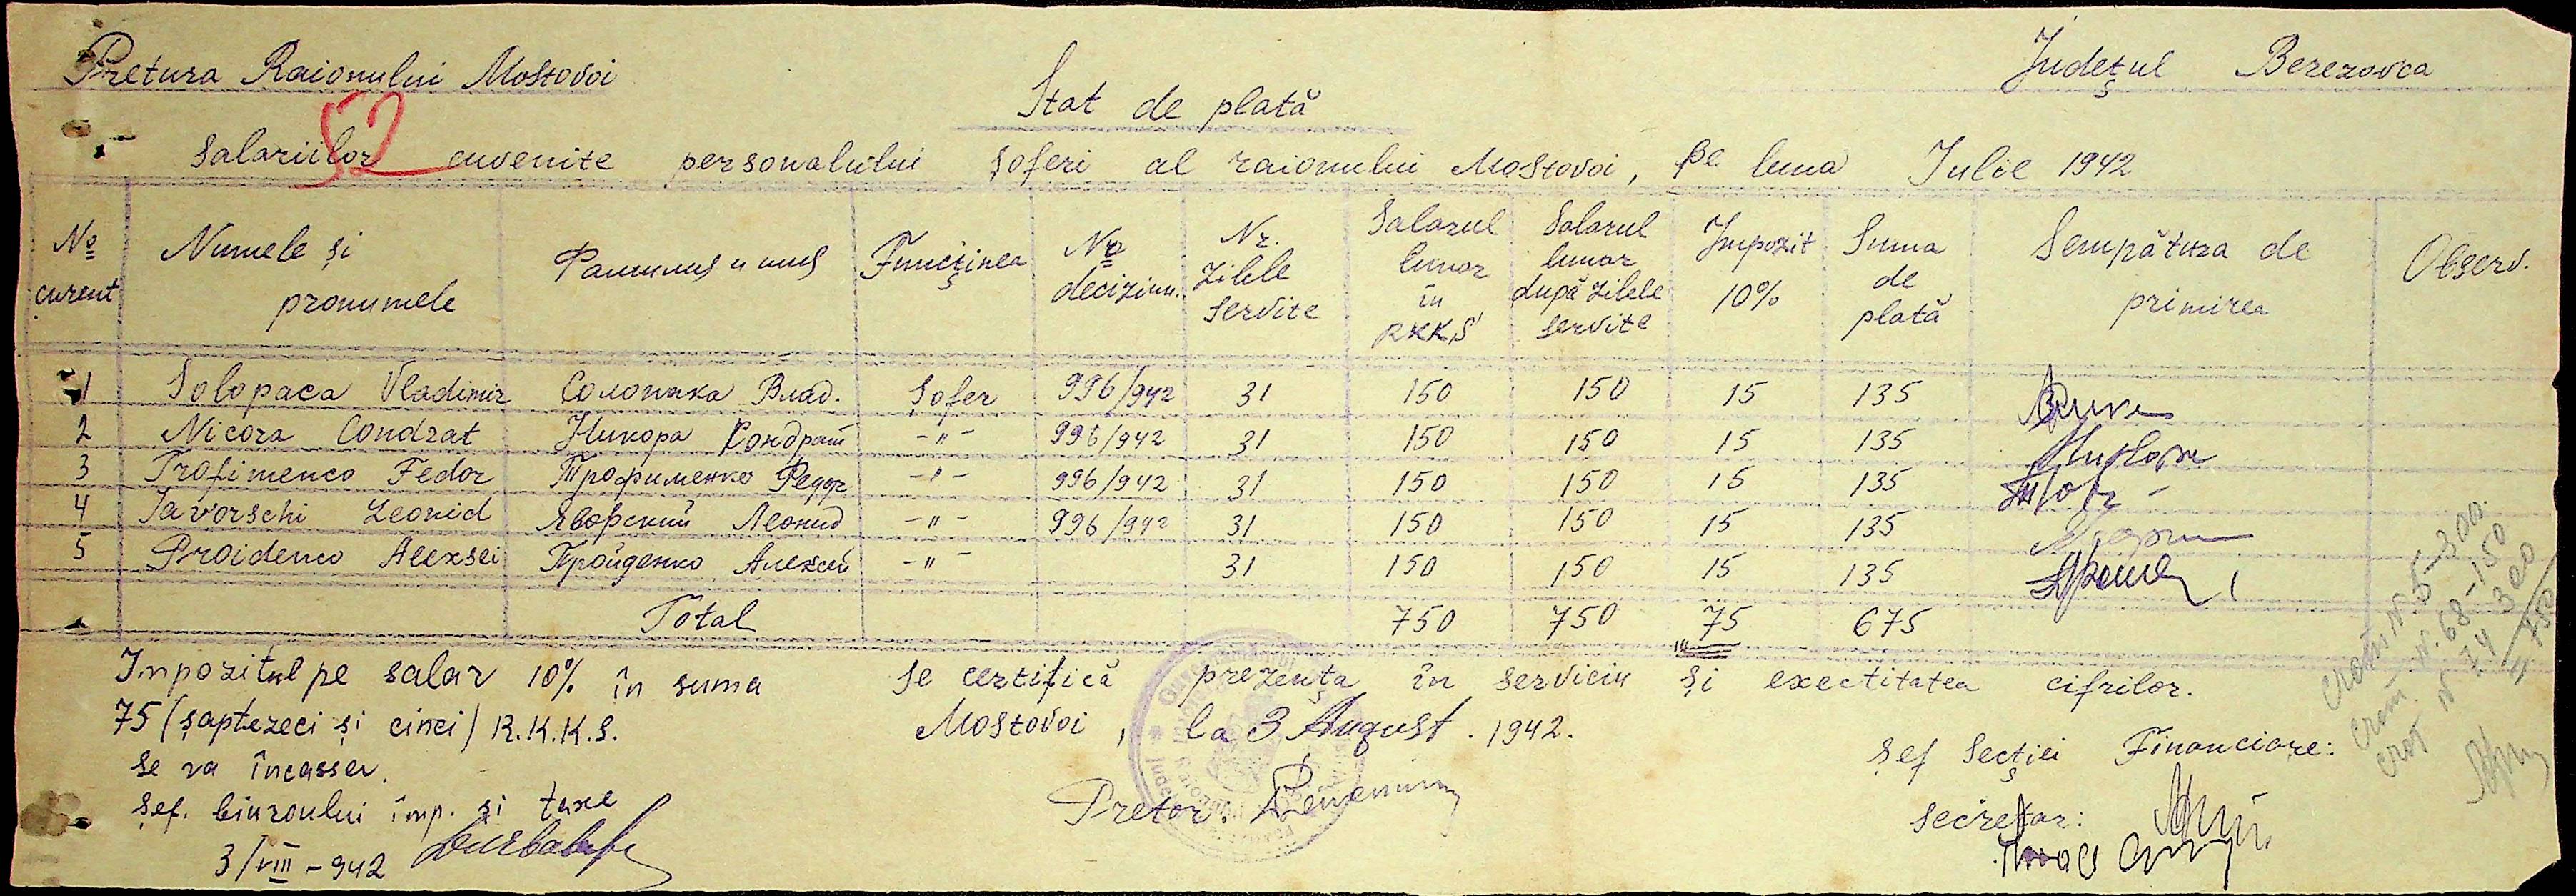 Pretura Raionului Mostovoi
Județul Berezovca
52
Stat de plată
Salariilor cuvenite personalului șoferi al raionului Mostovoi, pe luna Iulie 1942
№ curent | Numele și pronumele | Фамилия и имя | Funcținea | № deciziun. | Nr. zilele servite | Salarul lunar în RKKS | Salarul lunar după zilele servite | Impozit 10% | Suma de plată | Semnătura de primirea | Observ.
1 Solopaca Vladimir Солопака Влад. Șofer 996/942 31 150 150 15 135
2 Nicora Condrat Никора Кондрат -"- 996/942 31 150 150 15 135
3 Trofimenco Fedor Трофименко Федор -"- 996/942 31 150 150 15 135
4 Iavorschi Leonid Яворский Леонид -"- 996/942 31 150 150 15 135
5 Proidenco Alexsei Пройденко Алексей -"- 31 150 150 15 135
Total 750 750 75 675
Impozitul pe salar 10% în suma
75 (șaptezeci și cinci) R.K.K.S.
se va încassa.
Șef. biuroului imp. și taxe
3/VIII-942
Se certifică prezența în serviciu și exectitatea cifrilor.
Mostovoi, la 3 August. 1942.
Pretor:
Șef Secției Financiare:
Secretar:
N. 5-300.
N. 68-150
N 74 300
750